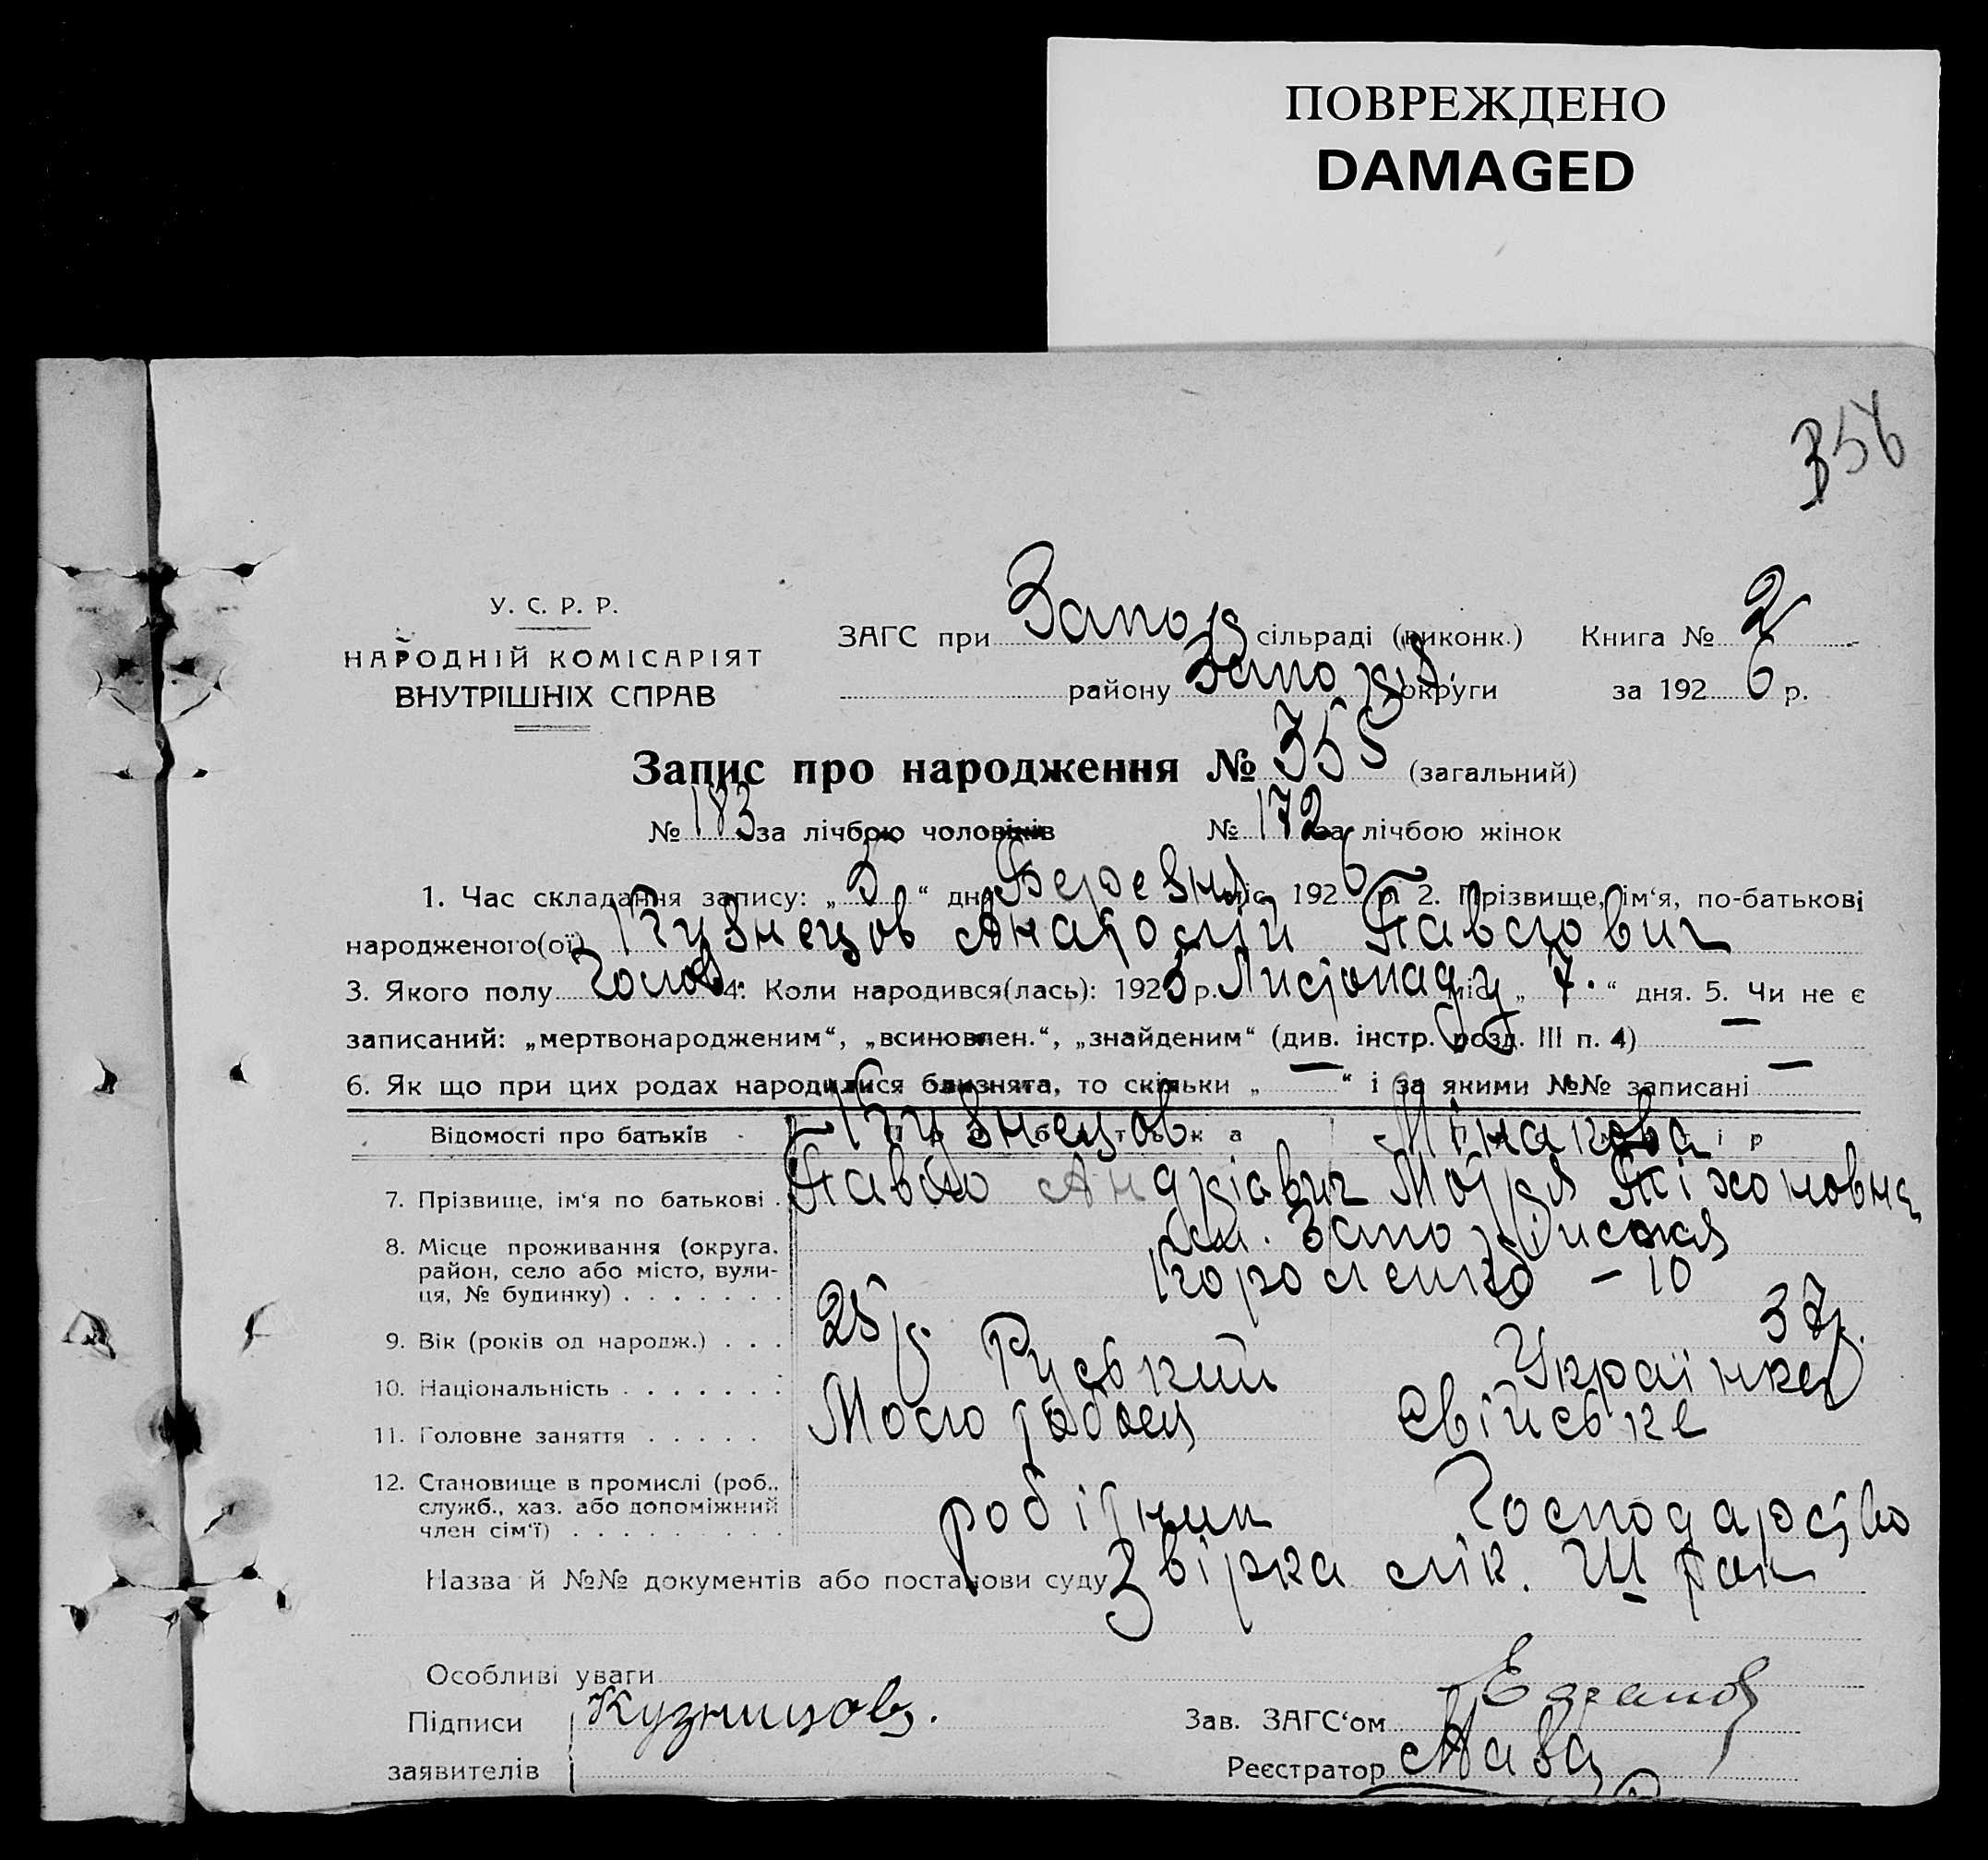 ПОВРЕЖДЕНО
DAMAGED
356
У. С. Р. Р.
НАРОДНІЙ КОМІСАРІЯТ
ВНУТРІШНІХ СПРАВ
ЗАГС при Запор сільраді (виконк.) Книга № 2
району Запор округи за 1926 р.
Запис про народження № 355 (загальний)
№ 183 за лічбою чоловіків № 172 за лічбою жінок
1. Час складання запису: „5“ дня Березня міс. 1926 р. 2. Прізвище, ім‘я, по-батькові
народженого(ої) Кузнецов Анатолій Павлович
3. Якого полу Чолов. 4. Коли народився(лась): 1925 р. Листопаду міс. „7.“ дня. 5. Чи не є
записаний: „мертвонародженим“, „всиновлен.“, „знайденим“ (див. інстр. розд. III п. 4) —
6. Як що при цих родах народилися близнята, то скільки „—“ і за якими №№ записані —
Відомості про батьків Про батька Про матір
Кузнецов Мінакова
7. Прізвище, ім‘я по батькові . Павло Андріавич Марія Тіхоновна
8. Місце проживання (округа, район, село або місто, вули-ця, № будинку) . . . . . . . Запоріжжя
Короленко – 10
9. Вік (років од народж.) . . . 25 р. 37 р.
10. Національність . . . . . . . Руський Українка
11. Головне заняття . . . . . Свійське
12. Становище в промислі (роб., служб., хаз. або допоміжний член сім‘ї) . . . . . . . . . робітник Господарство
Назва й №№ документів або постанови суду Звірка лік.
Особливі уваги
Підписи Кузницовъ.
заявителів
Зав. ЗАГС‘ом
Реєстратор